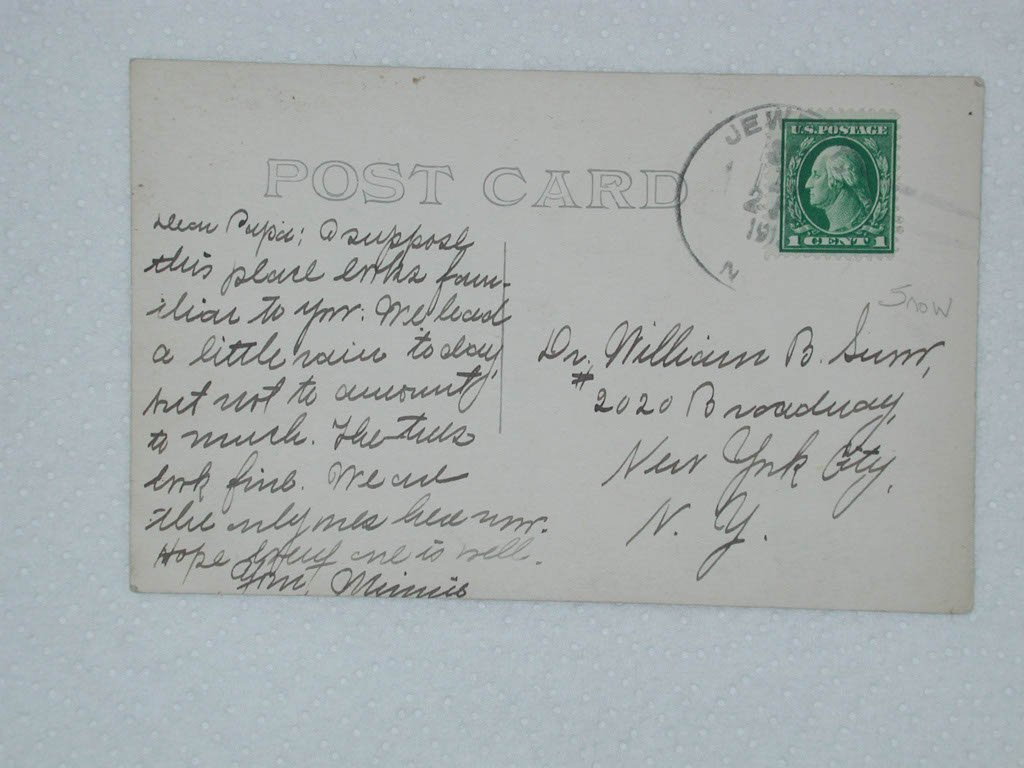 POST CARD
JEW
191
N
U.S. POSTAGE
1 CENT 1
Snow
Dear Papa: I suppose
this place looks fam-
iliar to you. We had
a little rain today,
but not to amount
to much. The trees
look fine. We are
the only ones here now.
Hope every one is well.
Minnie
Dr. William B.
# 2020 Broadway,
New York City,
N. Y.